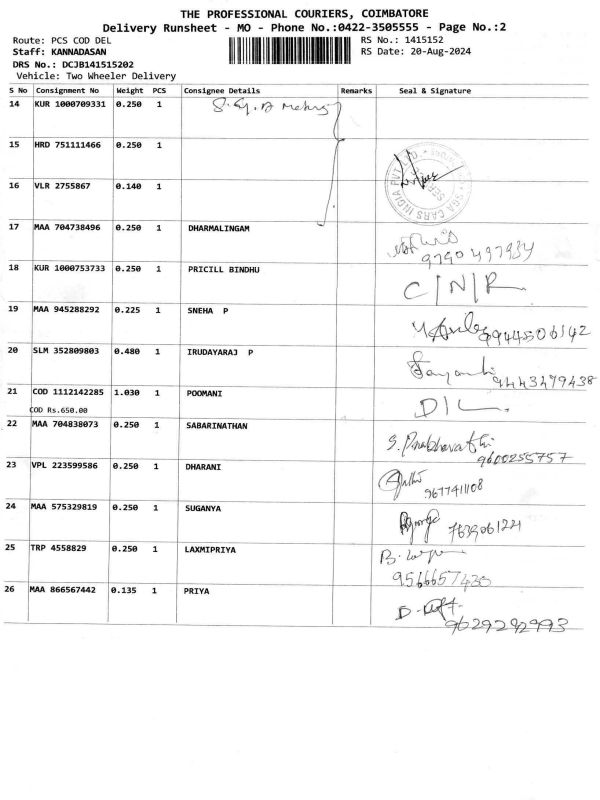 THE PROFESSIONAL COURIERS, COIMBATORE
Delivery Runsheet - MO - Phone No.:0422-3505555 - Page No.:2
Route: PCS COD DEL RS No.: 1415152
Staff: KANNADASAN RS Date: 20-Aug-2024
DRS No.: DCJB141515202
Vehicle: Two Wheeler Delivery
S No Consignment No Weight PCS Consignee Details Remarks Seal & Signature
14 KUR 1000709331 0.250 1
15 HRD 751111466 0.250 1
16 VLR 2755867 0.140 1
SGA CARS INDIA PVT. LTD.
17 MAA 704738496 0.250 1 DHARMALINGAM
9790497934
18 KUR 1000753733 0.250 1 PRICILL BINDHU C/N/R
19 MAA 945288292 0.225 1 SNEHA P 9944506142
20 SLM 352809803 0.480 1 IRUDAYARAJ P 9443479438
21 COD 1112142285 1.030 1 POOMANI D/L.
COD Rs.650.00
22 MAA 704838073 0.250 1 SABARINATHAN S. Prabhavathi
9600255757
23 VPL 223599586 0.250 1 DHARANI
9677411108
24 MAA 575329819 0.250 1 SUGANYA 7639061221
25 TRP 4558829 0.250 1 LAXMIPRIYA
9566657430
26 MAA 866567442 0.135 1 PRIYA
9629292993